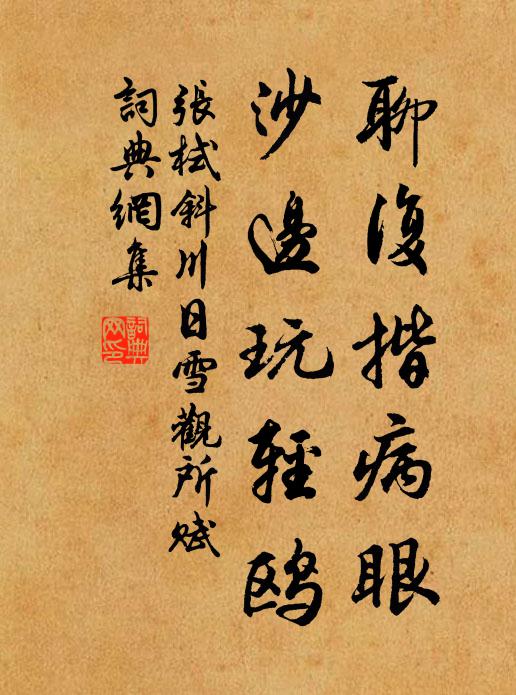 聊復揩病眼
沙邊玩輕鷗
張栻斜川日雪觀所賦
詞典網集
詞典
网印